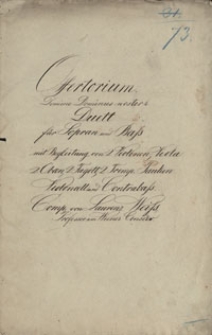 73.
Offertorium
Domine Dominus noster
Duett
für Sopran und Baß
mit Begleitung von 2 Violinen, Viola
2 Oboen, 2 Fagott, 2 Tromp. Pauken
Violoncell und Contrabass
Comp. von Laurenz Weiß
Professor am Wiener